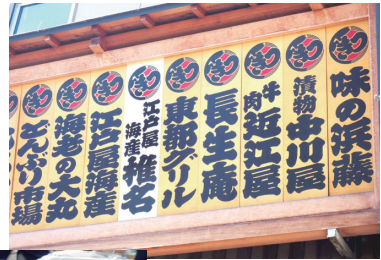 味の浜藤
漬物 中川屋
牛肉 近江屋
長生庵
東都グリル
江戸屋海産 椎名
江戸屋海産
海老の大丸
どんぶり市場